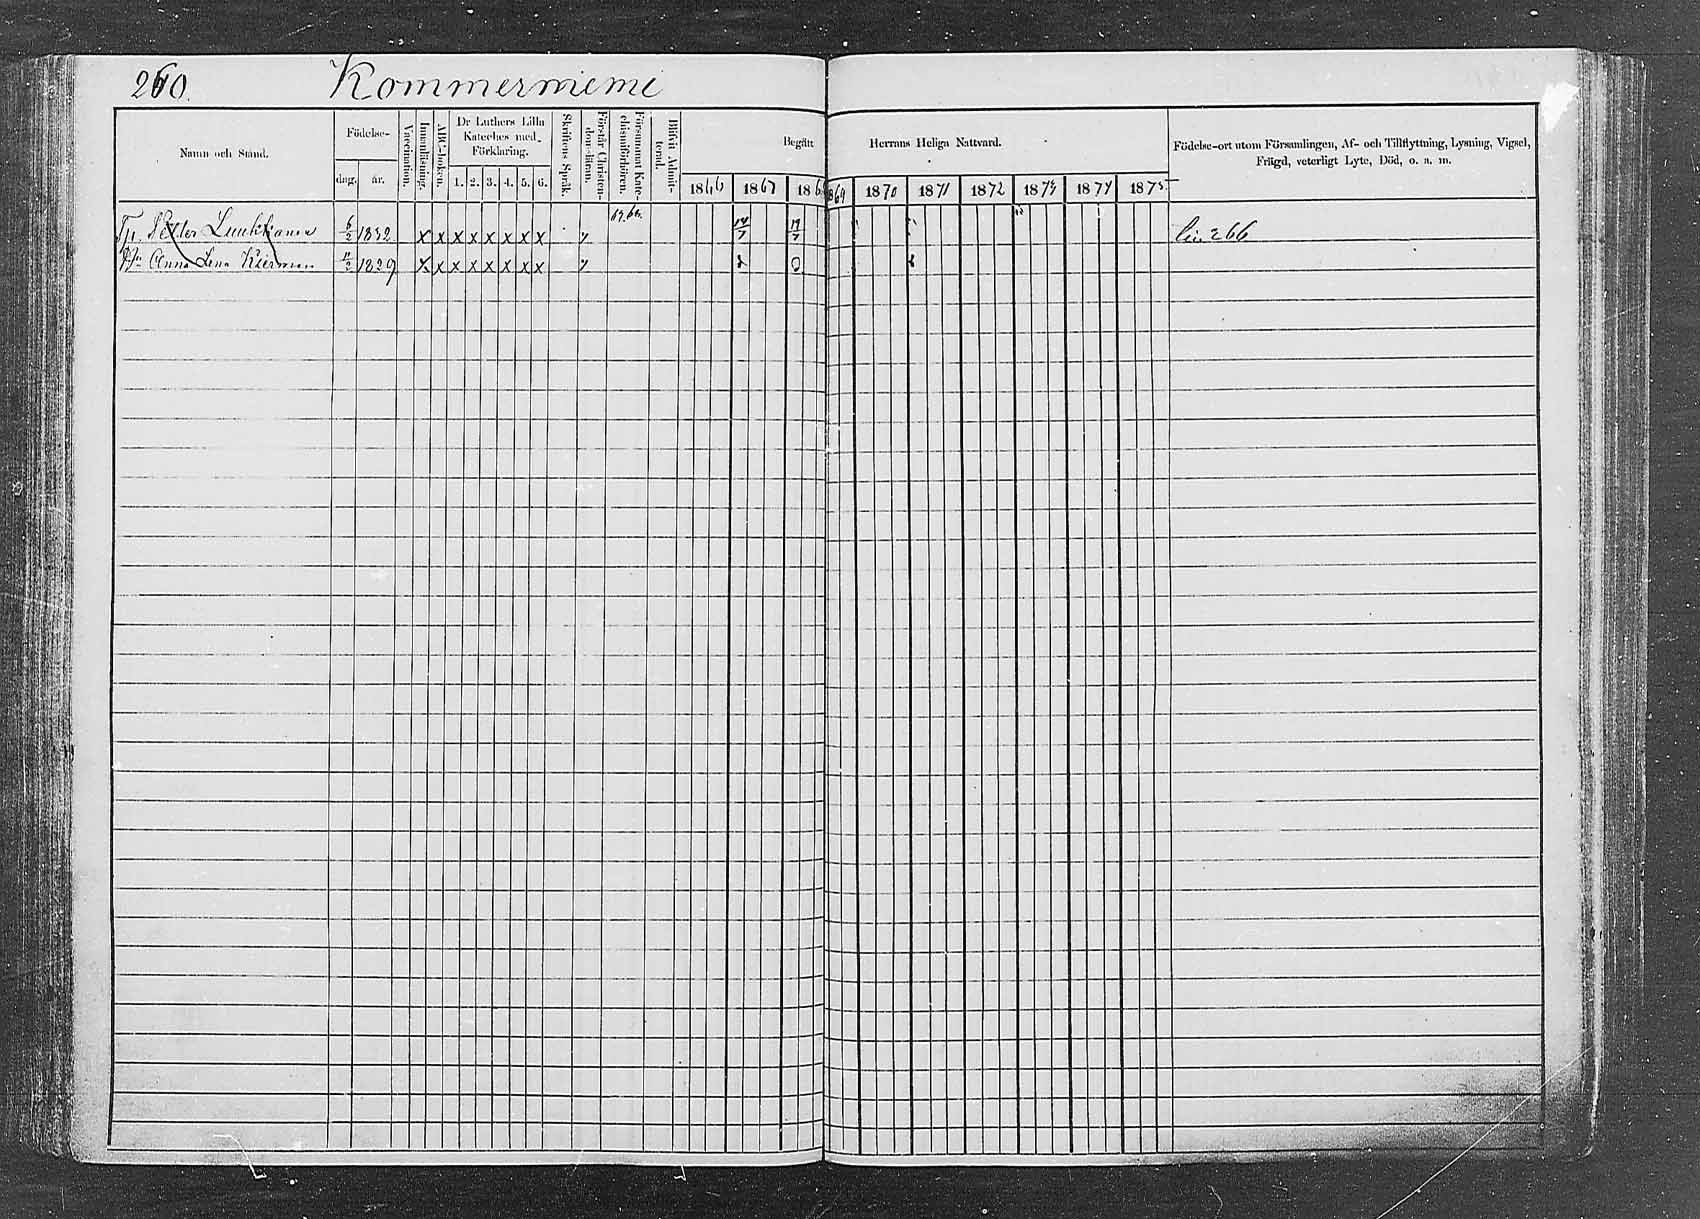 260. Kommerniemi
Namn och Stånd.
Födelse-
dag. år.
Vaccination.
Innanläsning.
ABC-boken.
Dr Luthers Lilla
Kateches med
Förklaring.
1. 2. 3. 4. 5. 6.
Skriftens Språk.
Förstår Christen-
doms-läran.
Försummat Kate-
chismiförhören.
Blifvit Admit-
terad.
Begått Herrans Heliga Nattvard.
1866 1867 1868 1869 1870 1871 1872 1873 1874 1875
Födelse-ort utom Församlingen, Af- och Tillflyttning, Lysning, Vigsel,
Frägd, veterligt Lyte, Död, o. a. m.
Petter Luukkanen 6/2 1832 x x x x x x x x 14/7 266
Anna Lena Kierman 1829 x x x x x x x x